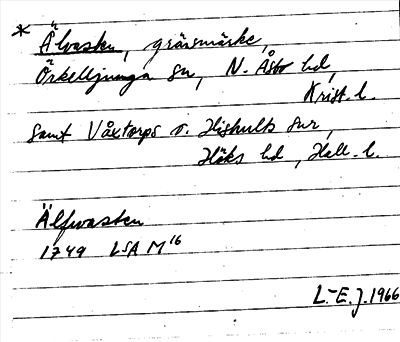 * Älvasten, gränsmärke,
Örkelljunga sn, N. Åsbo hd,
Krist. l.
samt Våxtorps o. Hishults snr,
Höks hd, Hall. l.
Älfwasten
1749 LSA M 16
L.-E. J. 1966